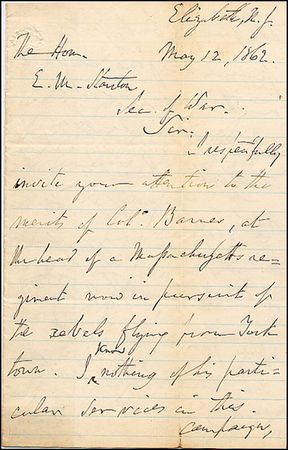 Elizabeth, N. J.
May 12, 1862.
The Hon.
E. M. Stanton
Sec. of War.
Sir.
I respectfully
invite your attention to the
merits of Col. Barnes, at
the head of a Massachusetts re=
giment now in pursuit of
the rebels flying from York
town. I know nothing of his parti=
cular services in this
campaign,